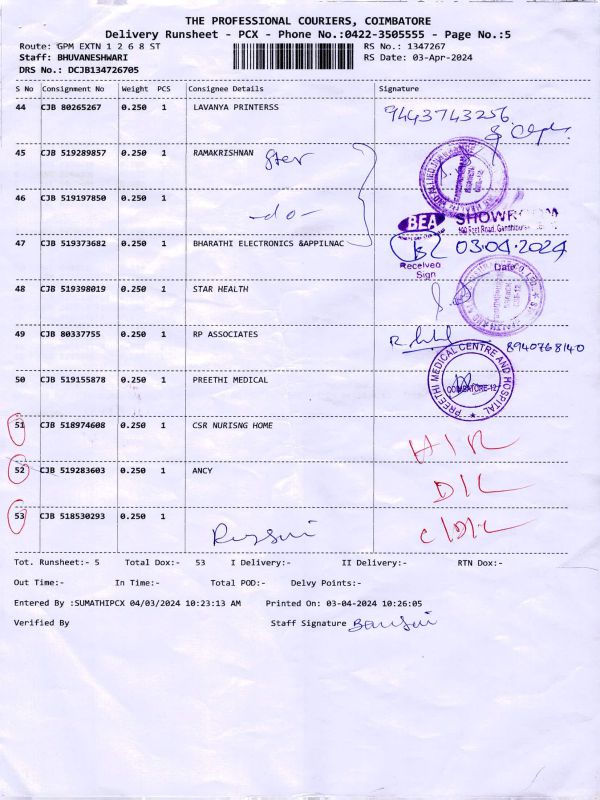 THE PROFESSIONAL COURIERS, COIMBATORE
Delivery Runsheet - PCX - Phone No.:0422-3505555 - Page No.:5
Route: GPM EXTN 1 2 6 8 ST RS No.: 1347267
Staff: BHUVANESHWARI RS Date: 03-Apr-2024
DRS No.: DCJB134726705
S No Consignment No Weight PCS Consignee Details Signature
44 CJB 80265267 0.250 1 LAVANYA PRINTERSS 9443743256
45 CJB 519289857 0.250 1 RAMAKRISHNAN
46 CJB 519197850 0.250 1 -do-
BEA SHOWROOM
47 CJB 519373682 0.250 1 BHARATHI ELECTRONICS &APPILNAC 03.04.2024
Received Sign Date
48 CJB 519398019 0.250 1 STAR HEALTH
49 CJB 80337755 0.250 1 RP ASSOCIATES 8940768140
50 CJB 519155878 0.250 1 PREETHI MEDICAL
PREETHI MEDICAL CENTRE AND HOSPITAL
COIMBATORE-12
51 CJB 518974608 0.250 1 CSR NURISNG HOME
52 CJB 519283603 0.250 1 ANCY D/L
53 CJB 518530293 0.250 1 C/D/L
Tot. Runsheet:- 5 Total Dox:- 53 I Delivery:- II Delivery:- RTN Dox:-
Out Time:- In Time:- Total POD:- Delvy Points:-
Entered By :SUMATHIPCX 04/03/2024 10:23:13 AM Printed On: 03-04-2024 10:26:05
Verified By Staff Signature